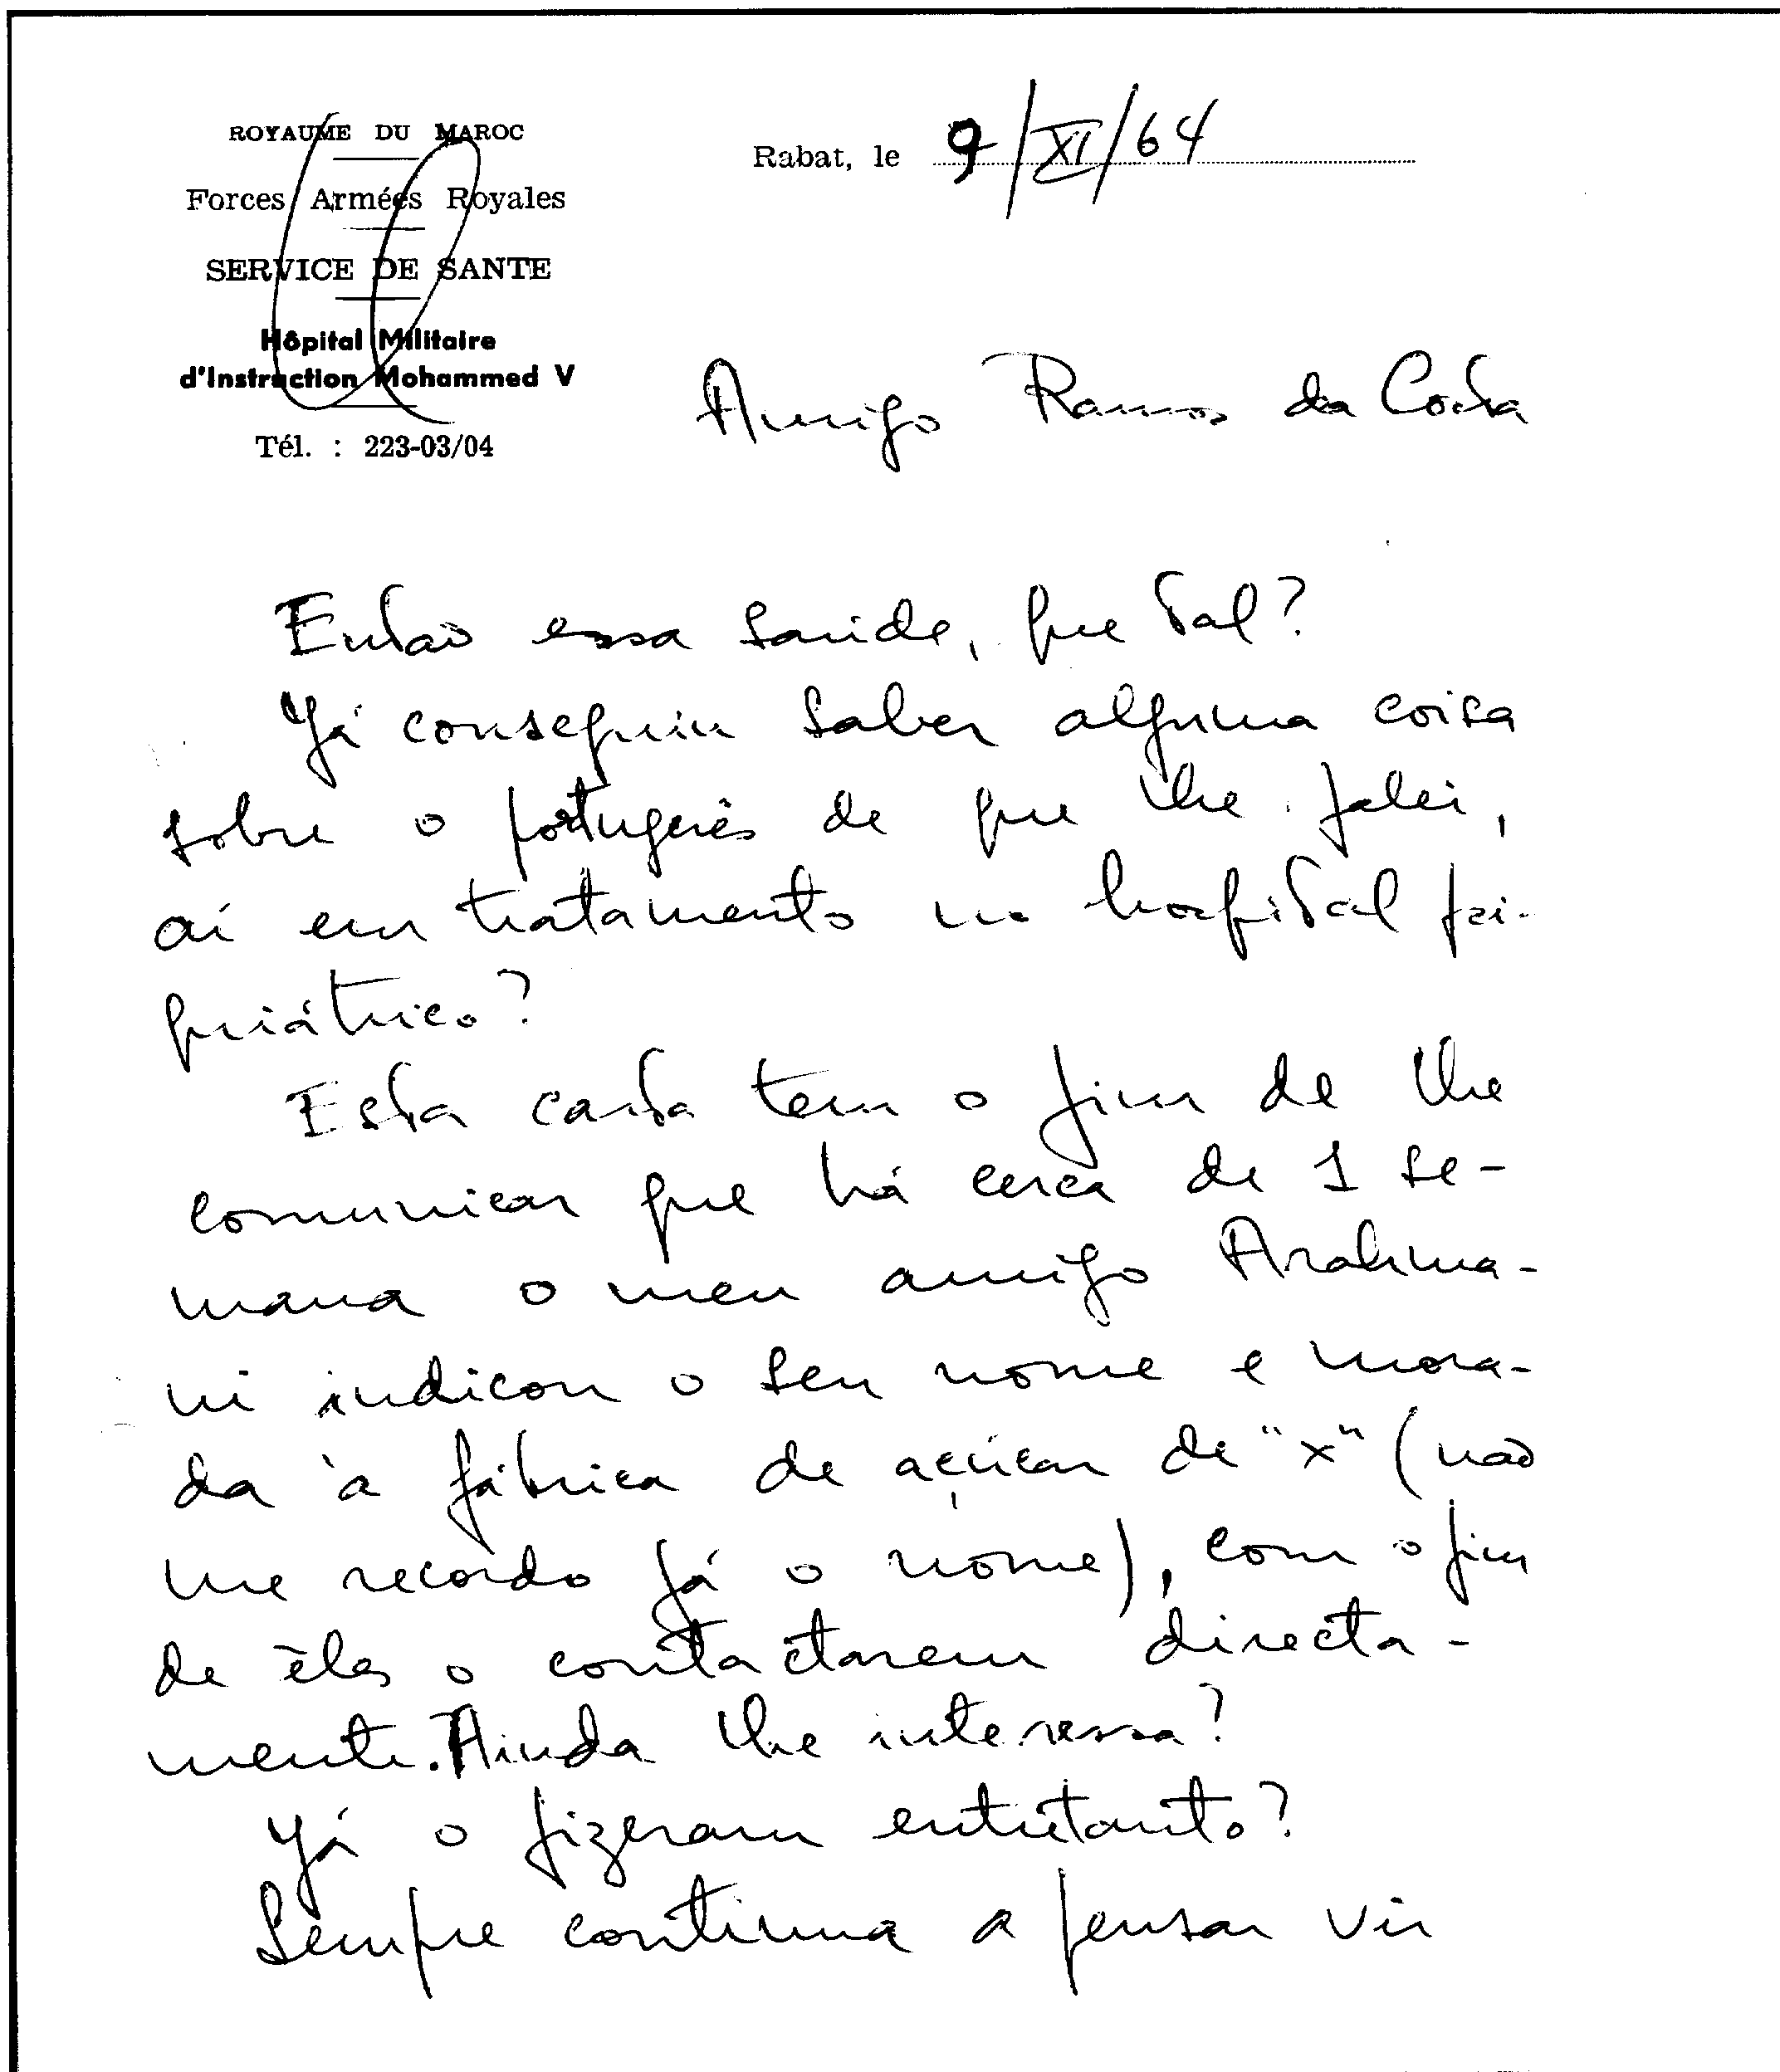 ROYAUME DU MAROC
Forces Armées Royales
SERVICE DE SANTE
Hôpital Militaire
d'Instruction Mohammed V
Tél. : 223-03/04
Rabat, le 9/XI/64
Amigo Ramos da Costa
Então essa saúde, que tal?
Já conseguiu saber alguma coisa
sobre o português de que lhe falei,
aí em tratamento no hospital psi-
quiátrico?
Esta carta tem o fim de lhe
comunicar que há cerca de 1 se-
mana o meu amigo Arahma-
ni indicou o seu nome e mora-
da à fábrica de açúcar de "x" (não
me recordo já o nome), com o fim
de êles o contactarem directa-
mente. Ainda lhe interessa?
Já o fizeram entretanto?
Sempre continua a pensar vir